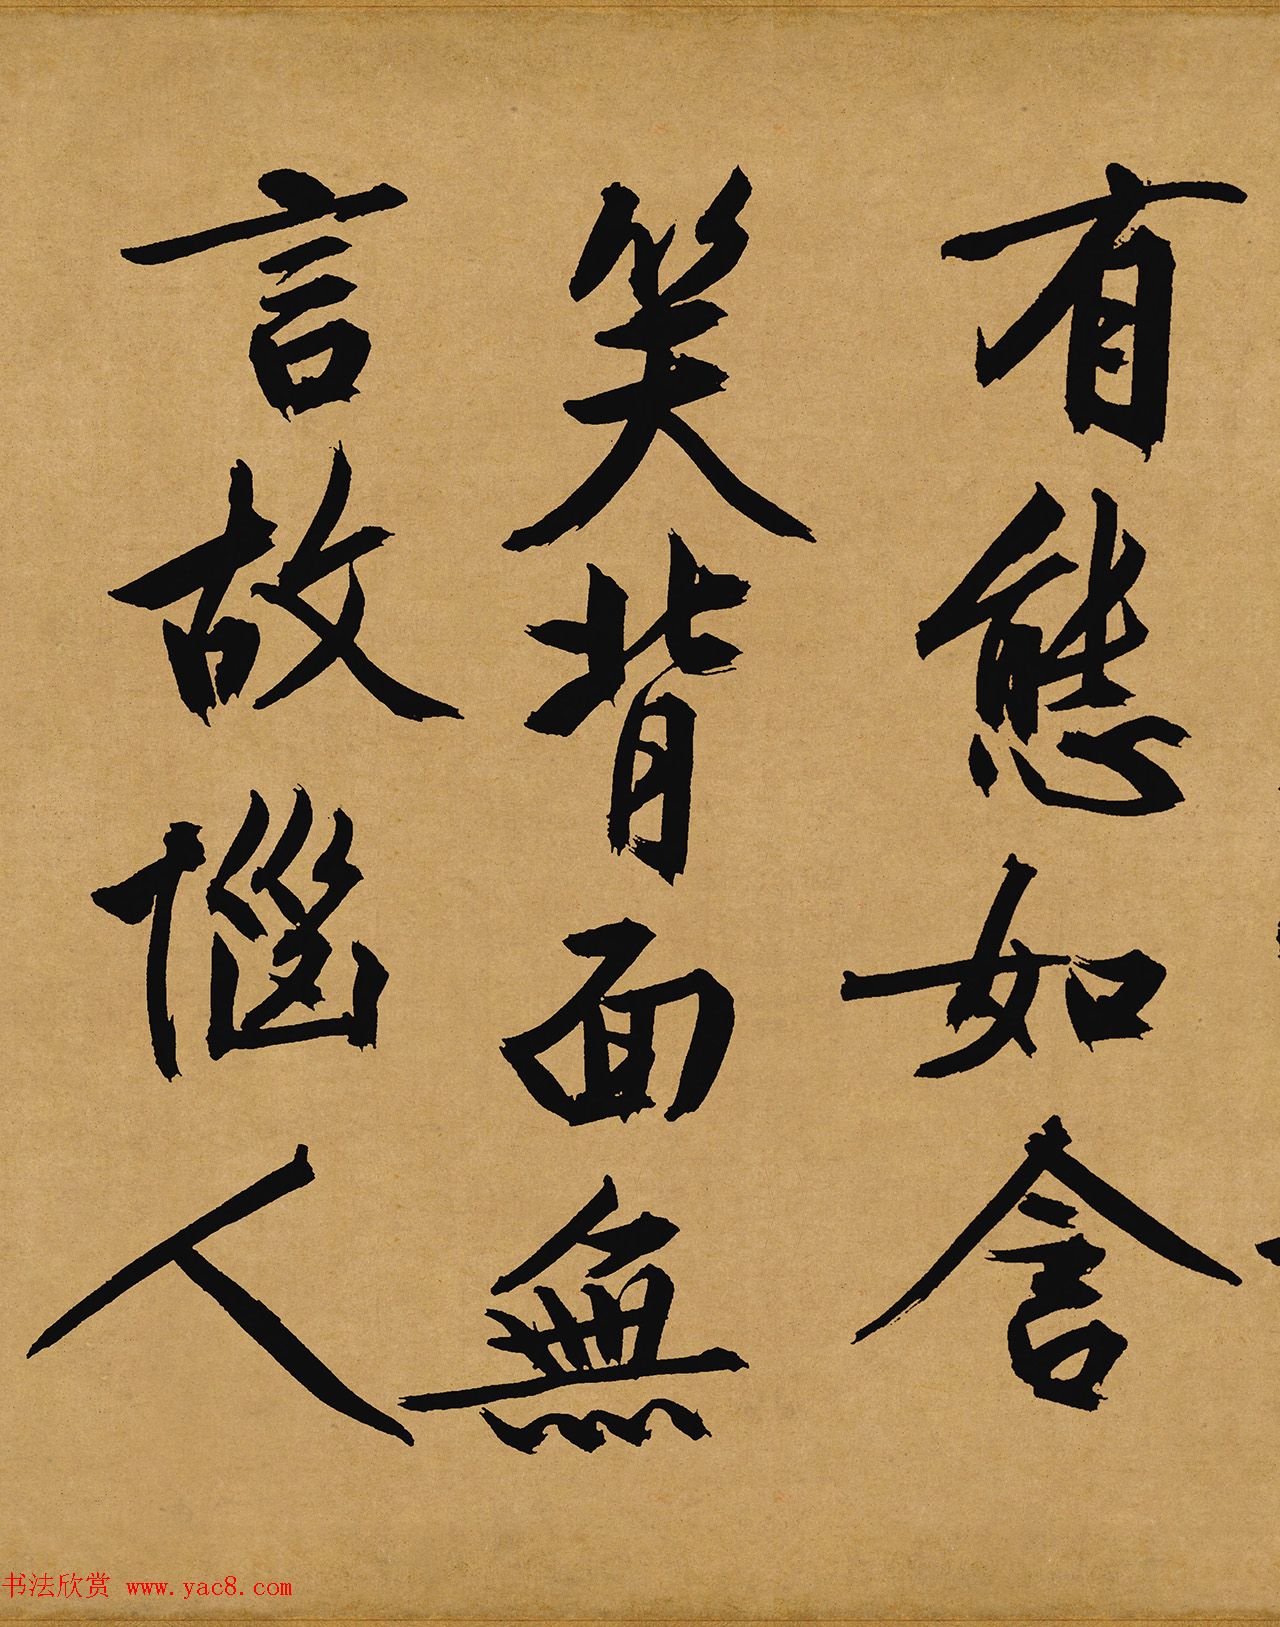 有態如含
笑背面無
言故惱人
书法欣赏 www.yac8.com